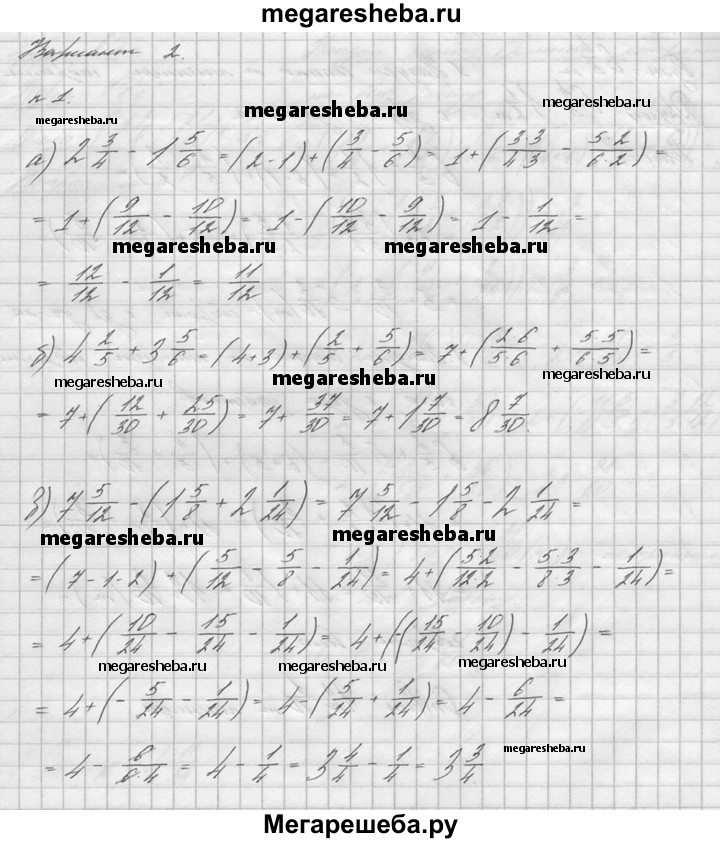 megaresheba.ru
Вариант 2.
№ 1.
megaresheba.ru megaresheba.ru megaresheba.ru
а) 2 3/4 - 1 5/6 = (2-1) + (3/4 - 5/6) = 1 + (3·3/4·3 - 5·2/6·2) =
= 1 + (9/12 - 10/12) = 1 - (10/12 - 9/12) = 1 - 1/12 =
megaresheba.ru megaresheba.ru
= 12/12 - 1/12 = 11/12
б) 4 2/5 + 3 5/6 = (4+3) + (2/5 + 5/6) = 7 + (2·6/5·6 + 5·5/6·5) =
megaresheba.ru megaresheba.ru megaresheba.ru
= 7 + (12/30 + 25/30) = 7 + 37/30 = 7 + 1 7/30 = 8 7/30.
в) 7 5/12 - (1 5/8 + 2 1/24) = 7 5/12 - 1 5/8 - 2 1/24 =
megaresheba.ru megaresheba.ru
= (7-1-2) + (5/12 - 5/8 - 1/24) = 4 + (5·2/12·2 - 5·3/8·3 - 1/24) =
= 4 + (10/24 - 15/24 - 1/24) = 4 + (-(15/24 - 10/24) - 1/24) =
megaresheba.ru megaresheba.ru megaresheba.ru
= 4 + (-5/24 - 1/24) = 4 - (5/24 + 1/24) = 4 - 6/24 =
= 4 - 6/6·4 = 4 - 1/4 = 3 4/4 - 1/4 = 3 3/4
megaresheba.ru
Мегарешеба.ру